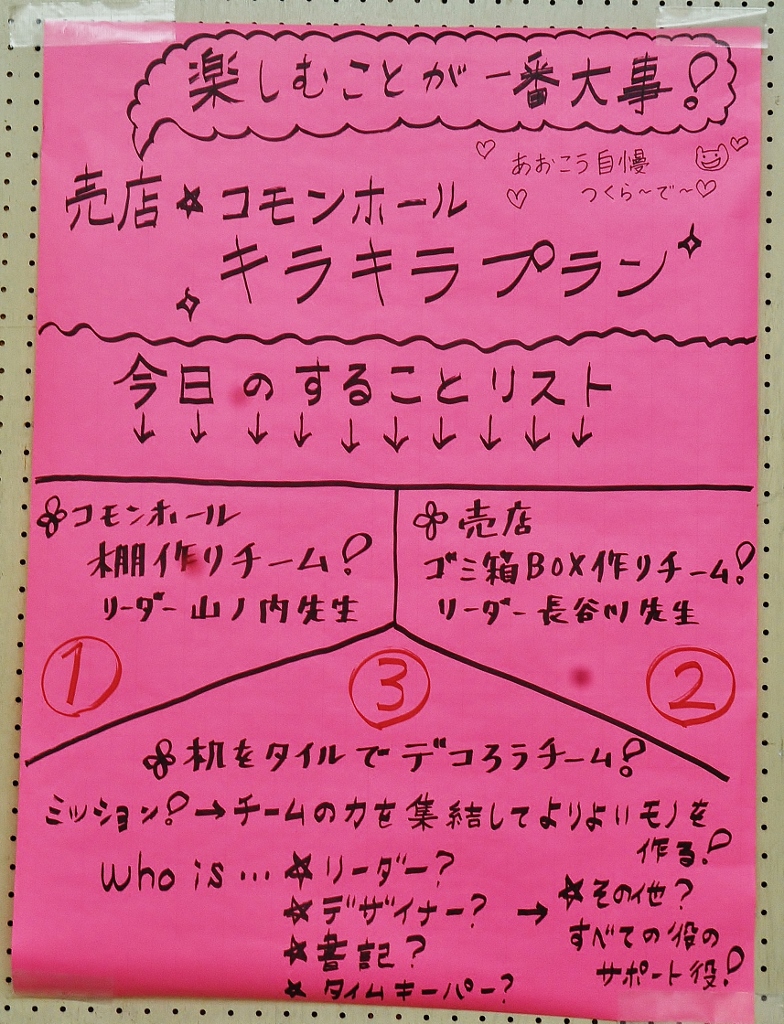 楽しむことが一番大事!
あおこう自慢
つくら〜で〜♡
売店★コモンホール
キラキラプラン
今日のすることリスト
↓ ↓ ↓ ↓ ↓ ↓ ↓ ↓ ↓ ↓
コモンホール
棚作りチーム!
リーダー山ノ内先生
①
売店
ゴミ箱BOX作りチーム!
リーダー長谷川先生
②
③
机をタイルでデコろうチーム!
ミッション!→チームの力を集結してよりよいモノを
作る!
who is…★リーダー?
★デザイナー?
★書記?
★タイムキーパー?
→★その他?
すべての役の
サポート役!